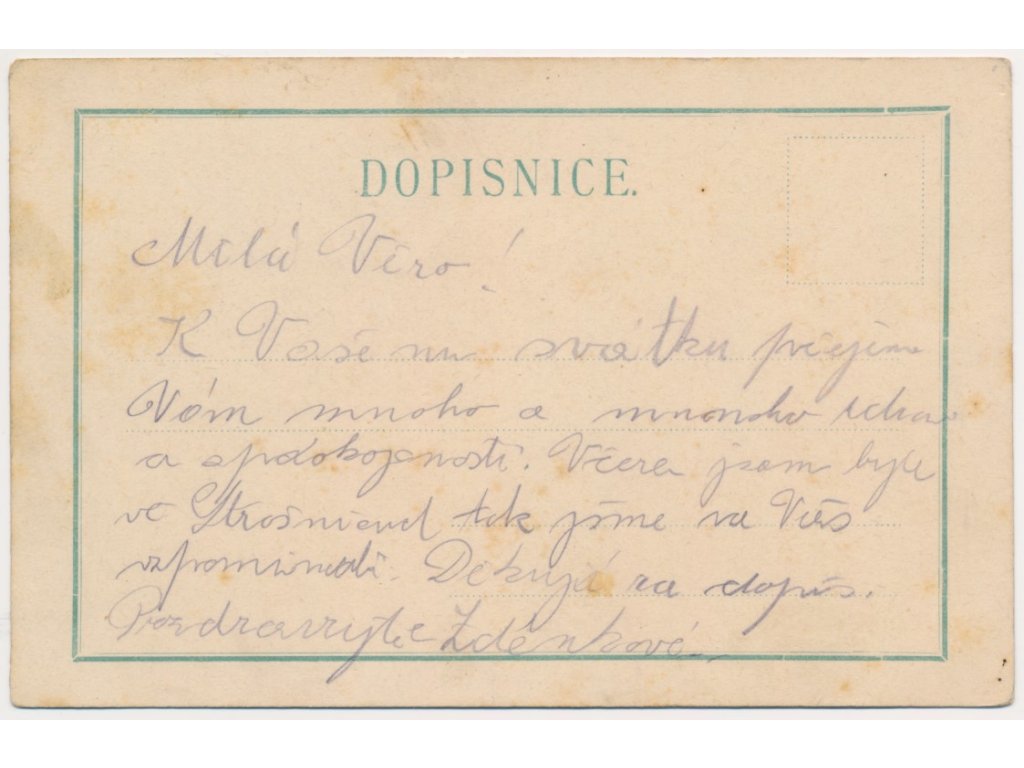 DOPISNICE.
Milá Věro!
K Vašemu svátku přejeme
Vám mnoho a mnonoho zdraví
a spokojenosti. Včera jsem byla
ve Strašnicích tak jsme na Vás
vzpomínali. Děkuji za dopis.
Pozdravujte Zdeňkové.